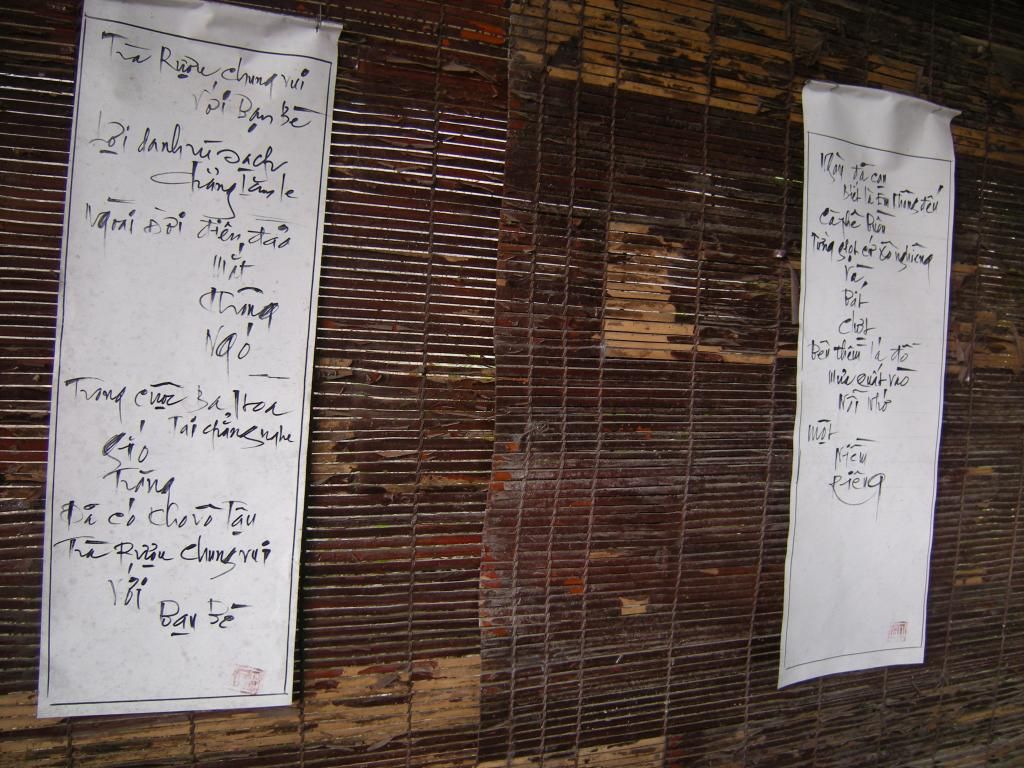 Trà Rượu chung vui
Với Bạn Bè
Lợi danh rũ sạch
chẳng lăm le
Ngoài Đời điên đảo
Mắt
Chẳng
Ngó
Trong cuộc Ba Hoa
Tai chẳng nghe
Gió
Trăng
Đã có cho vô Tận
Trà Rượu Chung vui
Với
Bạn Bè
đá cạn
Biết là Em
Cà phê Buồn
Từng giọt cứ nghiêng
Và
Bất
Chợt
Bên thềm lá đổ
Mưa quất vào
Nỗi Nhớ
Một
Niềm
Riêng